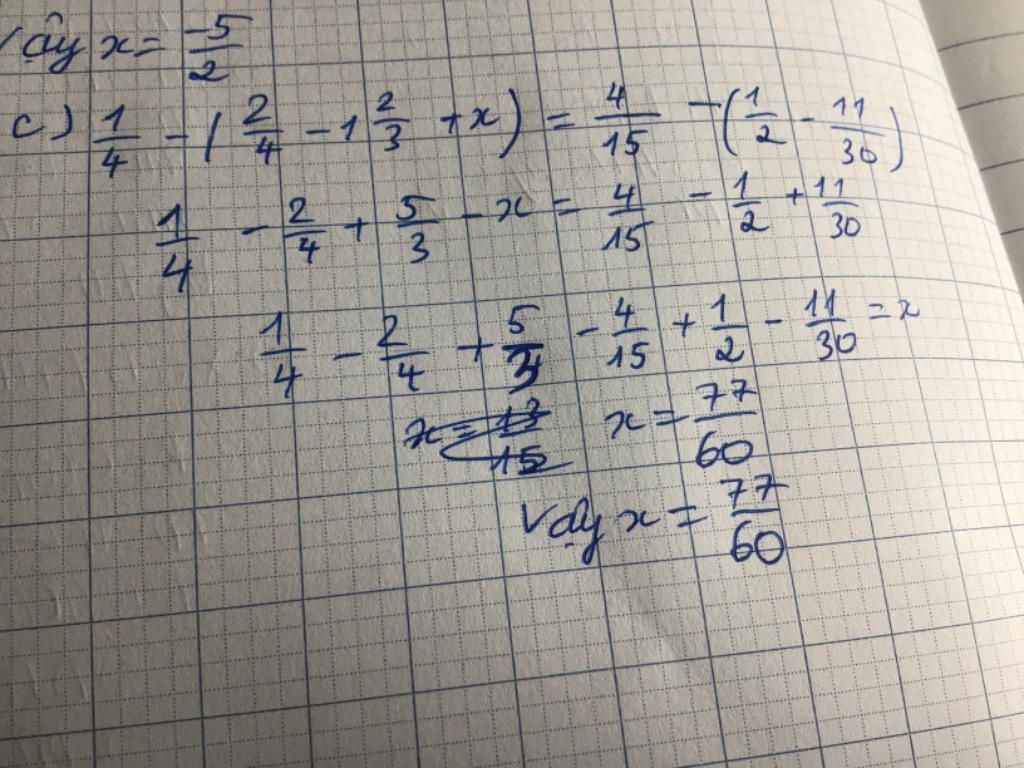 Vậy x = -5/2
c) 1/4 - (2/4 - 1 2/3 + x) = 4/15 - (1/2 - 11/30)
1/4 - 2/4 + 5/3 - x = 4/15 - 1/2 + 11/30
1/4 - 2/4 + 5/3 - 4/15 + 1/2 - 11/30 = x
x = 13/15 x = 77/60
Vậy x = 77/60